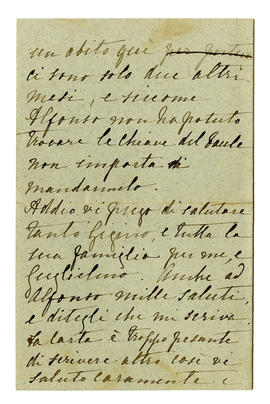 un abito quì per portar
ci sono solo due altri
mesi, e siccome
Alfonso non ha potuto
trovare le chiave del baule
non importa di
mandarmelo.
Addio vi prego di salutare
tanto Gigino, e tutta la
sua famiglia per me, e
Guglielmo. Anche ad
Alfonso mille saluti,
e ditegli che mi scriva
la carta è troppo pesante
di scrivere altre cose vi
saluto caramente e